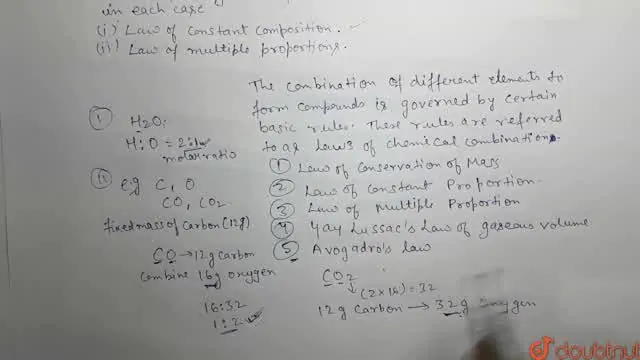 in each case
(i) Law of constant composition.
(ii) Law of multiple proportions.
The combination of different elements to
form compounds is governed by certain
basic rules. These rules are referred
to as laws of chemical combinations.
① Law of Conservation of Mass
② Law of Constant Proportion.
③ Law of Multiple Proportion
④ Gay Lussac's Law of gaseous volume
⑤ Avogadro's law
① H2O:
H:O = 2:1
molar ratio
② e.g C, O
CO, CO2.
Fixed mass of Carbon (12g)
CO → 12g carbon
Combine 16g oxygen
16:32
1:2
CO2
↓ (2×16) = 32
12g Carbon → 32g Oxygen
doubtnut